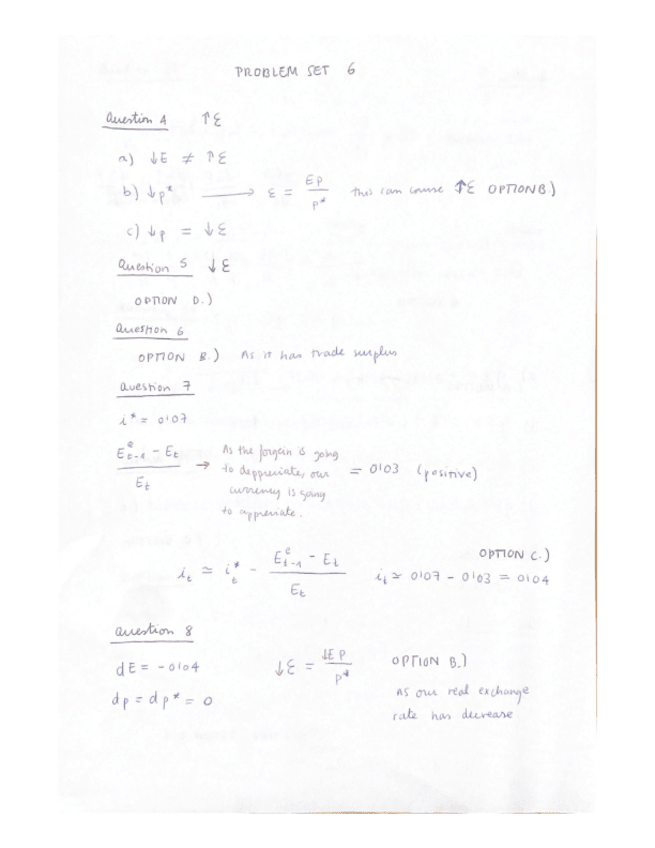 PROBLEM SET 6
Question 4 ↑ε
a) ↓E ≠ ↑ε
b) ↓p* → ε = EP / p* this can cause ↑ε OPTION B.)
c) ↓p = ↓ε
Question 5 ↓ε
OPTION D.)
Question 6
OPTION B.) As it has trade surplus
Question 7
i* = 0'07
(E^e_{t-1} - E_t) / E_t → As the forgein is going to deppreciate, our currency is going to appreciate. = 0'03 (positive)
OPTION C.)
i_t ≃ i*_t - (E^e_{t-1} - E_t) / E_t i_t ≃ 0'07 - 0'03 = 0'04
Question 8
dE = -0'04 ↓ε = ↓E P / p* OPTION B.)
dp = dp* = 0 As our real exchange
rate has decrease